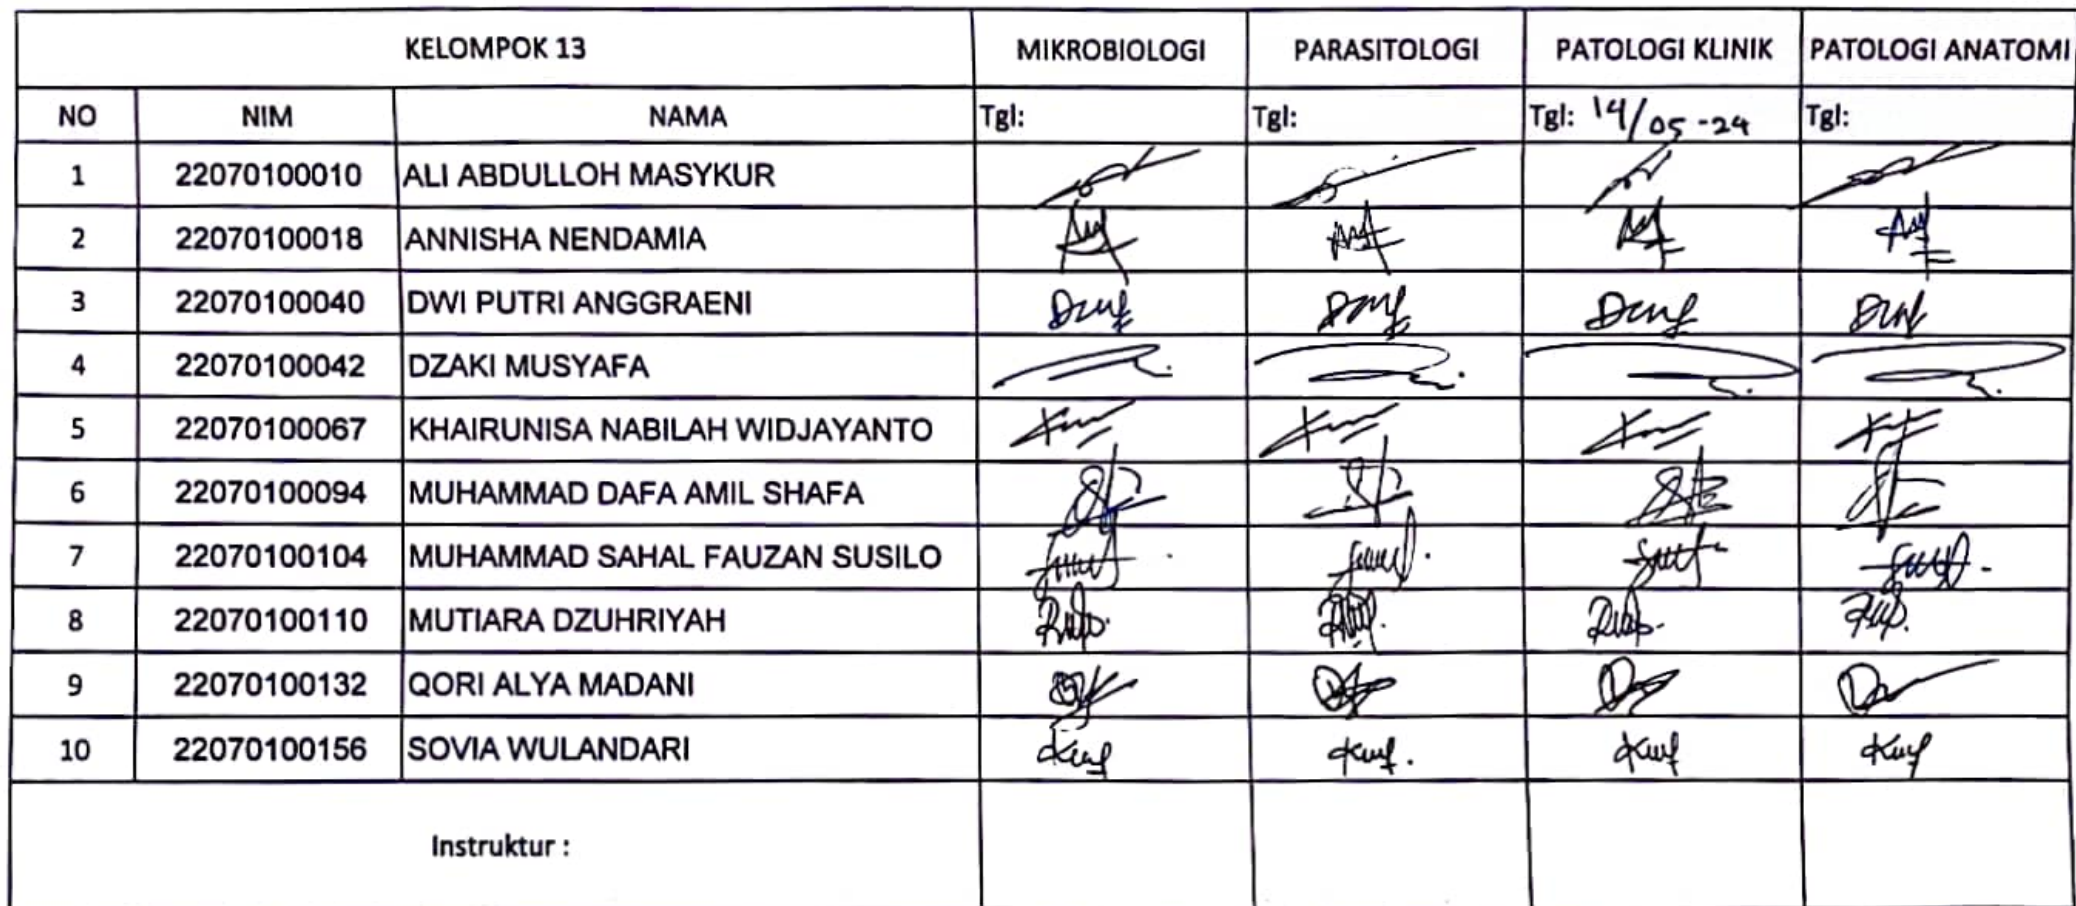 KELOMPOK 13 MIKROBIOLOGI PARASITOLOGI PATOLOGI KLINIK PATOLOGI ANATOMI
NO NIM NAMA Tgl: Tgl: Tgl: 14/05-24 Tgl:
1 22070100010 ALI ABDULLOH MASYKUR
2 22070100018 ANNISHA NENDAMIA
3 22070100040 DWI PUTRI ANGGRAENI
4 22070100042 DZAKI MUSYAFA
5 22070100067 KHAIRUNISA NABILAH WIDJAYANTO
6 22070100094 MUHAMMAD DAFA AMIL SHAFA
7 22070100104 MUHAMMAD SAHAL FAUZAN SUSILO
8 22070100110 MUTIARA DZUHRIYAH
9 22070100132 QORI ALYA MADANI
10 22070100156 SOVIA WULANDARI
Instruktur :